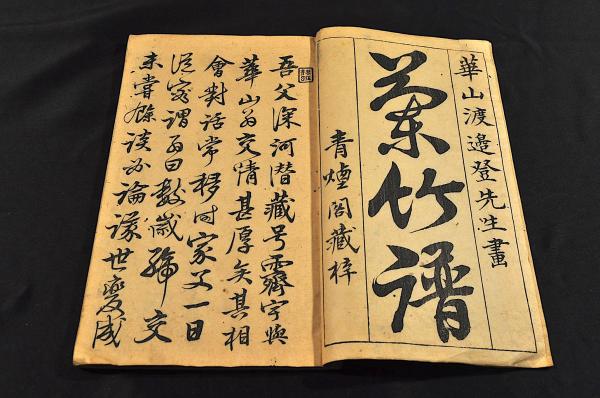 華山渡邊登先生畫
蘭竹譜
青煙閣藏梓
吾父深河潜藏号霽宇與
華山翁交情甚厚矣其相
會對話常移時家父一日
從容謂翁曰數歲締交
未嘗餘談必論議世變成